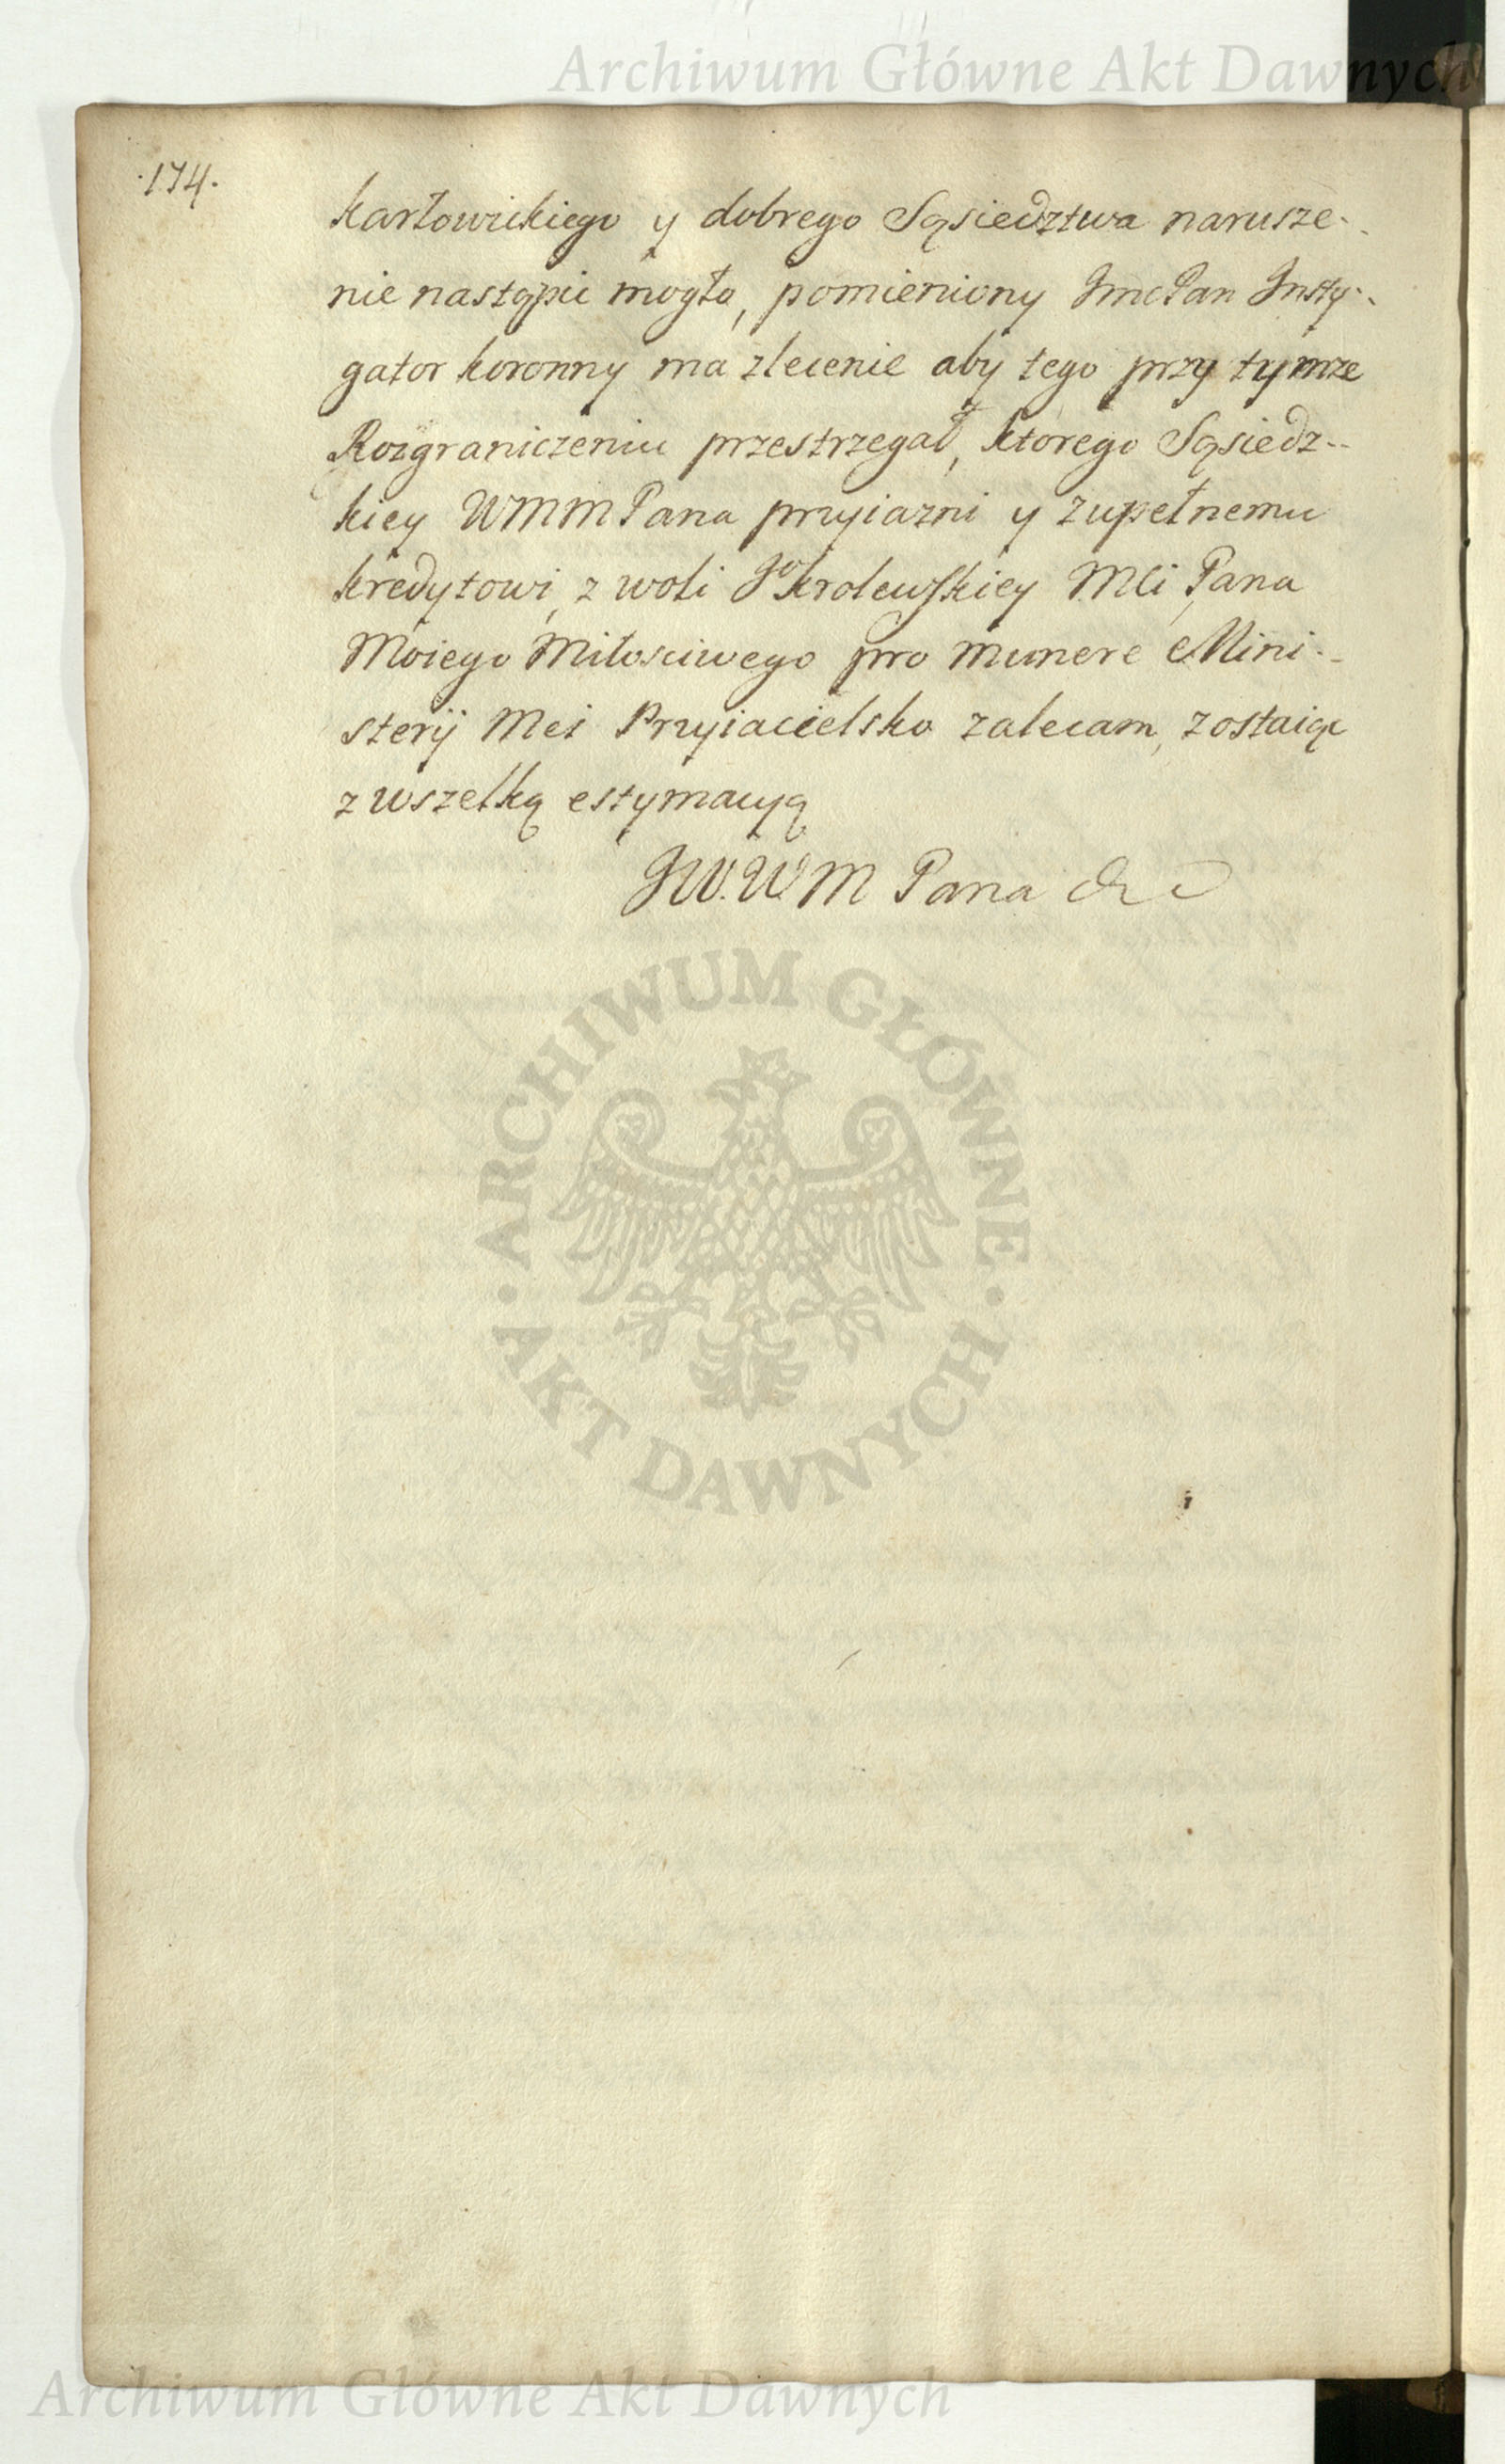 Archiwum Główne Akt Dawnych
·174·
Karłowickiego y dobrego Sąsiedztwa narusze-
nie nastąpic mogło, pomieniony JmcPan Insty-
gator koronny ma zlecenie aby tego przy tymze
Rozgraniczeniu przestrzegał, ktorego Sąsiedz-
kiey WMMPana przyiazni y zupełnemu
kredytowi, z woli Jo Krolewskiey Mci, Pana
Moiego Miłosciwego pro munere Mini-
sterij Mei Przyiacielsko zalecam, zostaiąc
z wszelką estymacyą
JW.W.M Pana &c
ARCHIWUM GŁÓWNE
· AKT DAWNYCH ·
Archiwum Główne Akt Dawnych